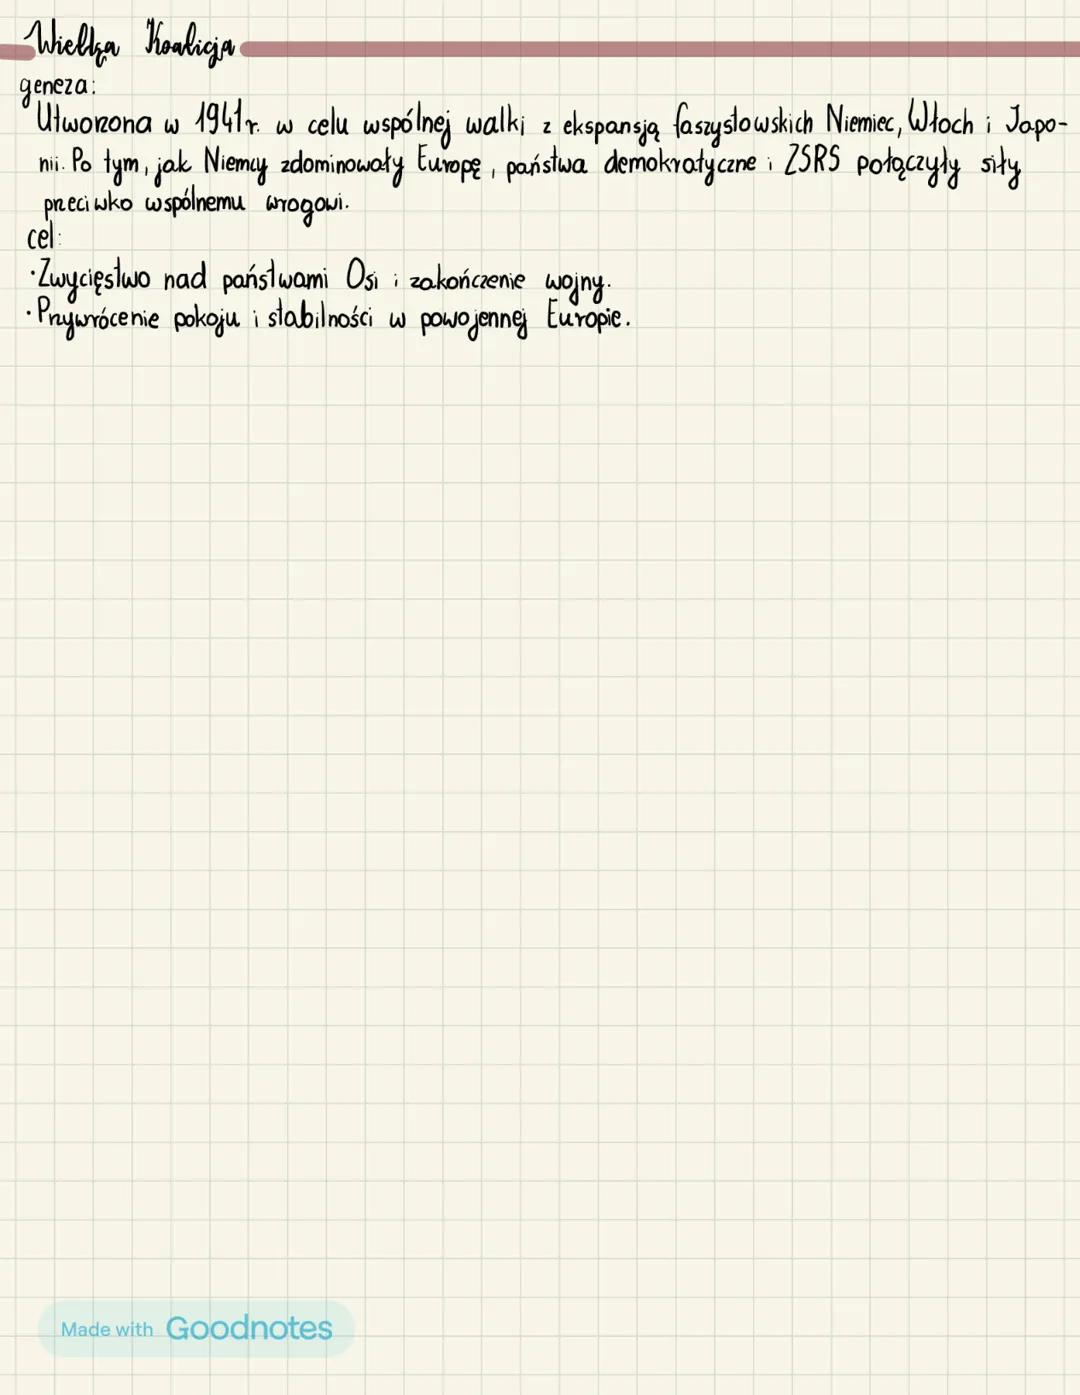 Wielka Koalicja
geneza:
Utworzona w 1941r. w celu wspólnej walki z ekspansją faszystowskich Niemiec, Włoch i Japo-
nii. Po tym, jak Niemcy zdominowały Europę, państwa demokratyczne i ZSRS połączyły siły
przeciwko wspólnemu wrogowi.
cel:
·Zwycięstwo nad państwami Osi i zakończenie wojny.
·Przywrócenie pokoju i stabilności w powojennej Europie.
Made with Goodnotes